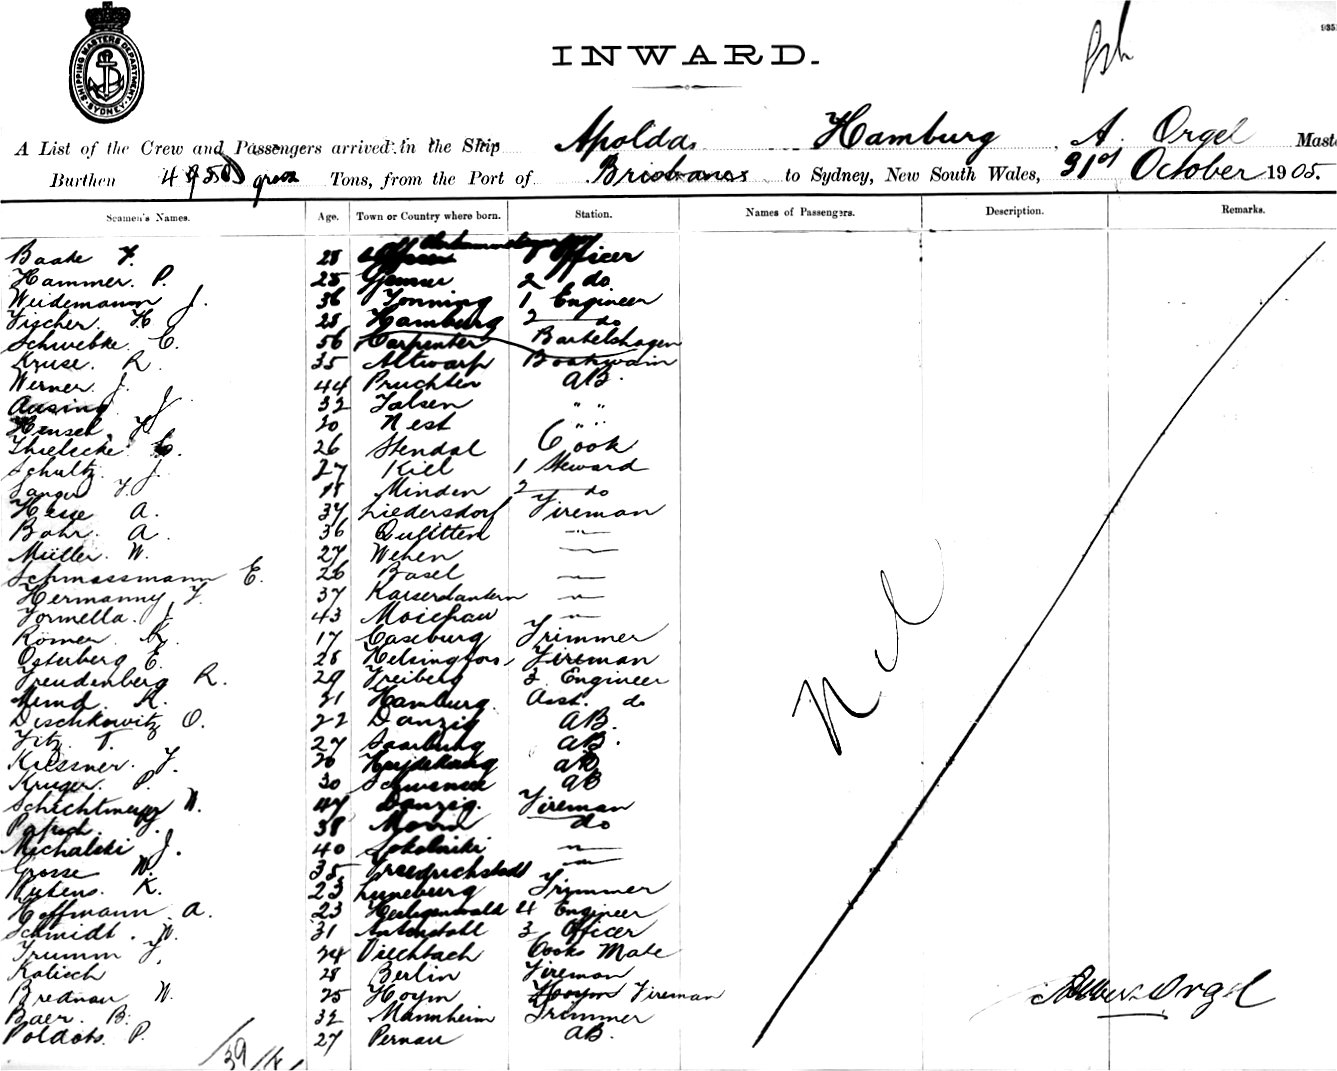 SHIPPING MASTERS DEPARTMENT
SYDNEY
INWARD.
A List of the Crew and Passengers arrived in the Ship Apolda Hamburg A. Orgel
Burthen gross Tons, from the Port of Brisbane to Sydney, New South Wales, 31st October 1905.
Seamen's Names. Age. Town or Country where born. Station. Names of Passengers. Description. Remarks.
Baake F. 28 Officer
Hammer. P. 25 2 do
Weidemann J. 36 Tonning 1 Engineer
Fischer. H 25 Hamburg 2 do
Schwebke. C. 56 Carpenter Bartelshagen
Kruse. R. 35 Altwarp Boatswain
Werner. J. 44 Pruchten AB.
J 32 Jalsen " "
Hensel. 20 Nest " "
Thielecke C. 26 Stendal Cook
Schultz J. 27 Kiel 1 Steward
Sanger F. 18 Minden 2 do
Hesse A. 37 Liedersdorf Fireman
Bohr. A. 36 Quittten
Müller. W. 27 Wehen
Schmassmann E. 26 Basel
Hermanny F. 37 Kaiserslautern
Formella. J. 43
Römer. K. 17 Caseburg Trimmer
Osterberg E. 28 Helsingfors Fireman
Freudenberg R. 29 Freiberg 3 Engineer
K. 21 Hamburg. Asst. do
Dischkowitz O. 22 Danzig AB.
Fitz. T. 27 Saarburg AB.
Kiessner. F. 26 AB
Kruger. P. 30 Schwansee AB
W. 47 Danzig. Fireman
38 do
Michalski J. 40 Sokolniki
Grosse W. 35 Friedrichstadt
K. 23 Luneburg Trimmer
Hoffmann A. 23 Heiligenwald 4 Engineer
Schmidt. W. 31 3 Officer
Trumm J. 24 Viechtach Cooks Mate
Kalisch 28 Berlin Fireman
Brednau W. 25 Hoym Hoym Fireman
Baer. B. 32 Mannheim Trimmer
P. 27 Pernau AB.
Nil
Orgel
39